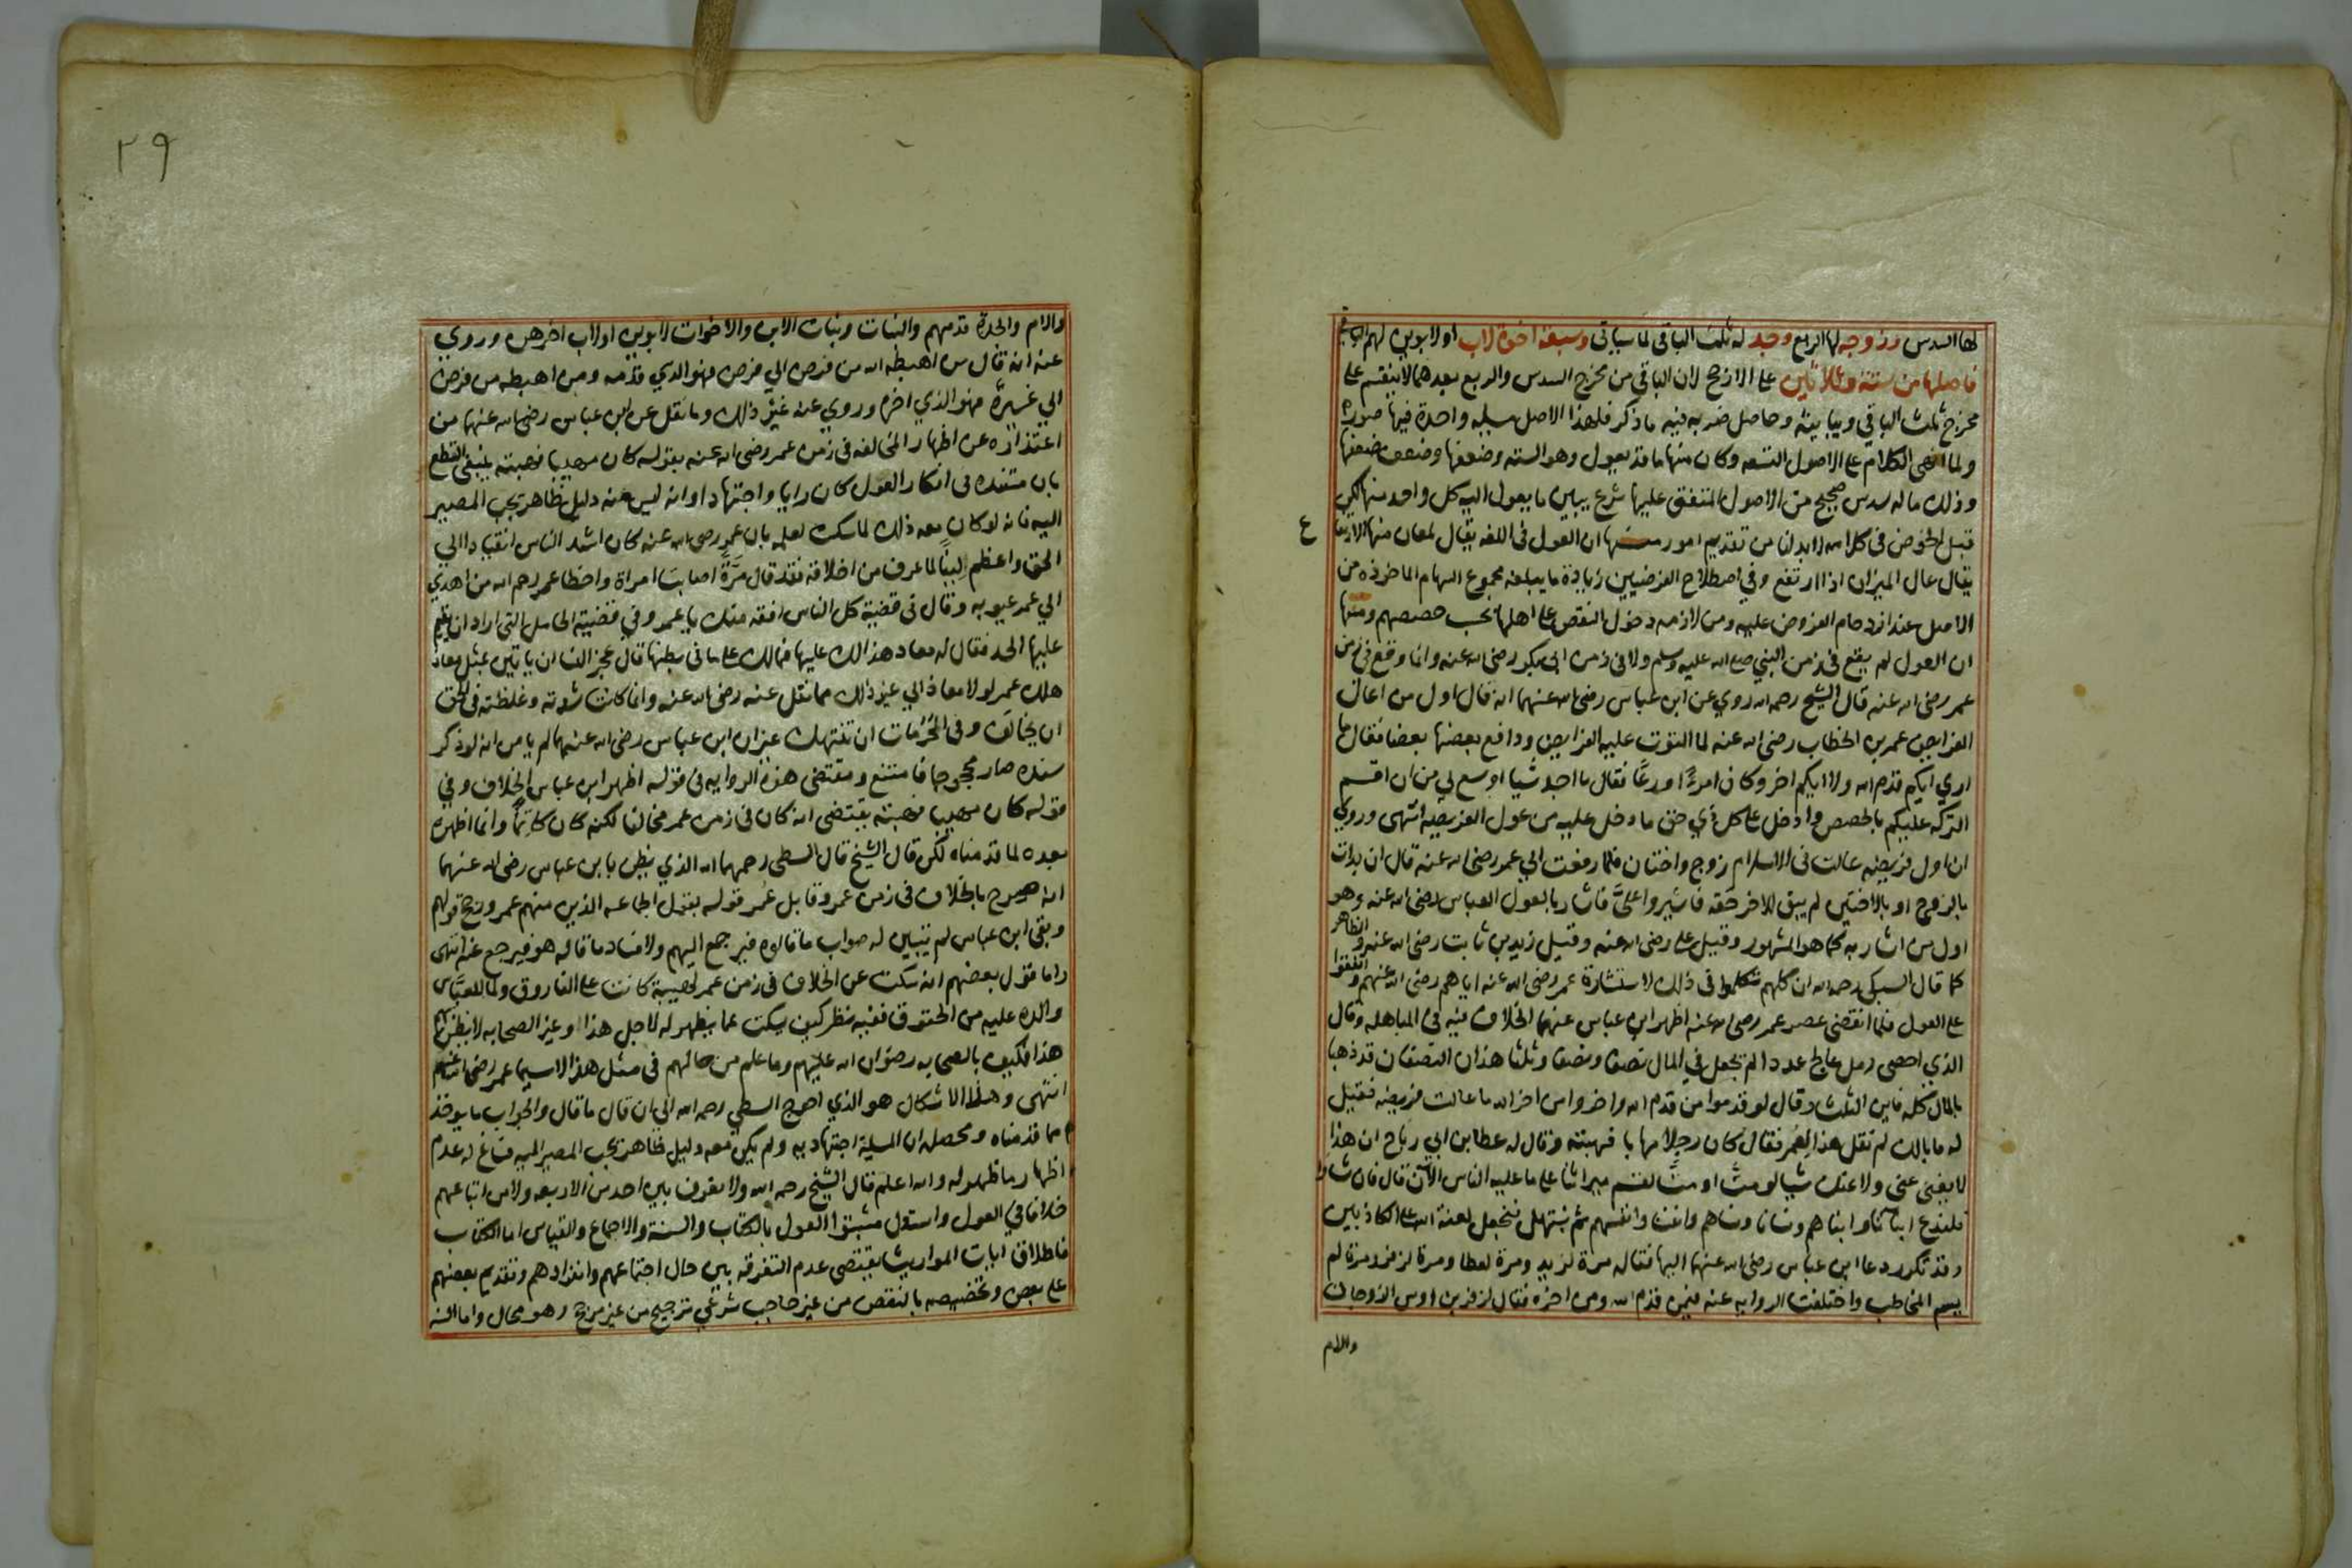 لها السدس وزوجه لها الربع وجد له ثلث الباقي لما سياتي وسبعة اخوة لاب او لابوين لهم الباقي
فاصلها من ستة وثلاثين على الارجح لان الباقي من مخرج السدس والربع بعدهما لا ينقسم على
مخرج ثلث الباقي ويباينه وحاصل ضربه فيه ما ذكر فلهذا الاصل مسيله واحدة فيها صورة
ولما انهى الكلام على الاصول التسعه وكان منها ما قد يعول وهو الستة وضعفها وضعف ضعفها
وذلك ما له سدس صحيح من الاصول المتفق عليها شرع يبين ما يعول اليه كل واحد منها لكن
قبل الخوض في كلامه لا بد لنا من تقديم امور منها ان العول في اللغه يقال لمعان منها الارتفاع
يقال عال الميزان اذا ارتفع وفي اصطلاح الفرضيين زيادة ما يبلغه مجموع السهام الماخوذه من
الاصل عند ازدحام الفروض عليه ومن لازمه دخول النقص على اهلها بحسب حصصهم ومنها
ان العول لم يقع في زمن النبي صلى الله عليه وسلم ولا في زمن ابي بكر رضي الله عنه وانما وقع في زمن
عمر رضي الله عنه قال الشيخ رحمه الله روي عن ابن عباس رضي الله عنهما انه قال اول من اعال
الفرايض عمر بن الخطاب رضي الله عنه لما التوت عليه الفرايض ودافع بعضها بعضا فقال ما
ادري ايكم قدم الله ولا ايكم اخر وكان امرءًا ورعًا فقال ما اجد شيا اوسع لي من ان اقسم
التركه عليكم بالحصص وادخل على كل ذي حق ما دخل عليه من عول الفريضه انتهى وروي
ان اول فريضه عالت في الاسلام زوج واختان فلما رفعت الي عمر رضي الله عنه قال ان بدات
بالزوج او بالاختين لم يبق للاخر حقه فاشيروا علىَّ فاشار بالعول العباس رضي الله عنه وهو
اول من اشار به كما هو المشهور وقيل علي رضي الله عنه وقيل زيد بن ثابت رضي الله عنه والظاهر
كما قال السبكي رحمه الله ان كلهم تكلموا في ذلك لاستشارة عمر رضي الله عنه اياهم رضي الله عنهم واتفقوا
على العول فلما انقضى عصر عمر رضي الله عنه اظهر ابن عباس عنهما الخلاف فيه في المباهله وقال
الذي احصى رمل عالج عددا لم يجعل في المال نصفا ونصفا وثلثا هذان النصفان قد ذهبا
بالمال كله فاين الثلث وقال لو قدموا من قدم الله واخروا من اخر الله ما عالت فريضه فقيل
له ما بالك لم تقل هذا لعُمر فقال كان رجلا مهابا فهبته وقال له عطا بن ابي رباح ان هذا
لا يغني عني ولا عنك شيا لو متُّ او متَّ لقسم ميراثنا على ما عليه الناس الآن قال فان شاوا
فلندع ابنانا وابناهم ونسانا ونساهم وانفسنا وانفسهم ثم نبتهل فنجعل لعنة الله على الكاذبين
وقد تكرر دعا ابن عباس رضي الله عنهما اليها فقاله مرة لزيد ومرة لعطا ومرة لزفر ومرة لم
يسم المخاطب واختلفت الروايه عنه فيمن قدم الله ومن اخره فقال لزفر بن اوس الزوجان
والام
٢٩
والام والجدة قدمهم والبنات وبنات الابن والاخوات لابوين او لاب اخرهن وروي
عنه انه قال من اهبطه الله من فرض الي فرض فهو الذي قدمه ومن اهبطه من فرض
الي غيرة فهو الذي اخره وروي عنه غير ذلك وما نقل عن ابن عباس رضي الله عنهما من
اعتذاره عن اظهار المخالفه في زمن عمر رضي الله عنه بقوله كان مهيبا فهبته ينبغي القطع
بان مستنده في انكار العول كان رايا واجتهادا وانه ليس معه دليل ظاهر يجب المصير
اليه فانه لو كان معه ذلك لما سكت لعلمه بان عمر رضي الله عنه كان اشد الناس انقيادا الي
الحق واعظم لينًا لما عرف من اخلاقه فقد قال مرَّةً اصابت امراة واخطا عمر رحم الله من اهدي
الي عمر عيوبه وقال في قضية كل الناس افقه منك يا عمر وفي قضية الحامل التي اراد ان يقيم
عليها الحد فقال له معاذ هذا لك عليها فمالك على ما في بطنها قال عجز النسا ان ياتين بمثل معاذ
هلك عمر لولا معاذ الي غير ذلك مما نقل عنه رضي الله عنه وانما كانت شدته وغلظته في الحق
ان يخالف وفي الحُرُمات ان تنتهك غير ان ابن عباس رضي الله عنهما لم يامن انه لو ذكر
سنده صار محجوجا فامتنع ومقتضى هذه الروايه في قوله اظهر ابن عباس الخلاف وفي
قوله كان مهيبا فهبته يقتضي انه كان في زمن عمر مخالفا لكنه كان كاتمًا وانما اظهره
بعده لما قدمناه لكن قال الشيخ قال السطي رحمهما الله الذي يظن بابن عباس رضي الله عنهما
انه صرح بالخلاف في زمن عمر وقابل عُمر قوله بقول الجماعه الذين منهم عمر ورجح قولهم
وبقي ابن عباس لم يتبين له صواب ما قالوه فيرجع اليهم ولا فساد ما قاله هو فيرجع عنه انتهى
واما قول بعضهم انه سكت عن الخلاف في زمن عمر لهيبة كانت على الفاروق ولما للعبَّاس
والده عليه من الحقوق ففيه نظر كيف يسكت عما يظهر له لاجل هذا وغير الصحابه لا يظن بهم
هذا فكيف بالصحابه رضوان الله عليهم وما علم من حالهم في مثل هذا لا سيما عمر رضي الله عنهم
انتهى وهذا الاشكال هو الذي احوج السطي رحمه الله الى ان قال ما قال والجواب ما يوخذ
مما قدمناه ومحصله ان المسيلة اجتهاديه ولم يكن معه دليل ظاهر يجب المصير اليه فساغ له عدم
اظهار ما ظهر له والله اعلم قال الشيخ رحمه الله ولا يعرف بين احد من الاربعه ولا من اتباعهم
خلافا في العول واستدل مثبتوا العول بالكتاب والسنة والاجماع والقياس اما الكتاب
فاطلاق ايات المواريث يقتضي عدم التفرقه بين حال اجتماعهم وانفرادهم وتقديم بعضهم
على بعض وتخصيصه بالنقص من غير حاجب شرعي ترجيح من غير مرجح وهو محال واما السنه